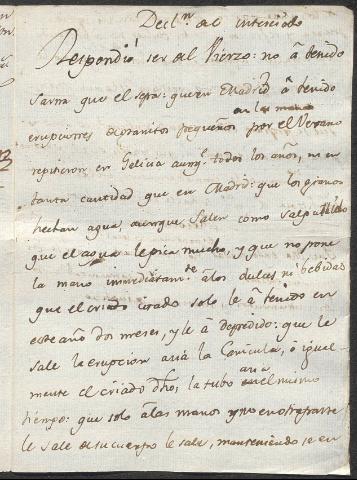 Decln. del interesado
Respondió ser del Vierzo: no á tenido
sarna que el sepa: que en Madrid á tenido
en las manos
erupciones de granitos pequeños por el Verano
repitieron en Galicia aunq.e todos los años, no en
tanta cantidad que en Madrid: que los granos
hechan agua, aunque salen como salpullido
que el agua le pica mucho, y que no pone
la mano immediatam.te á los dulces ni bebidas
que el criado citado solo le á tenido en
este año dos meses, y le á depedido: que le
sale la erupcion acia la Canicula, é igual-
mente el criado dho, la tubo acia el mismo
tiempo: que solo á las manos y no en otra parte
le sale de su cuerpo le sale, manteniendose en